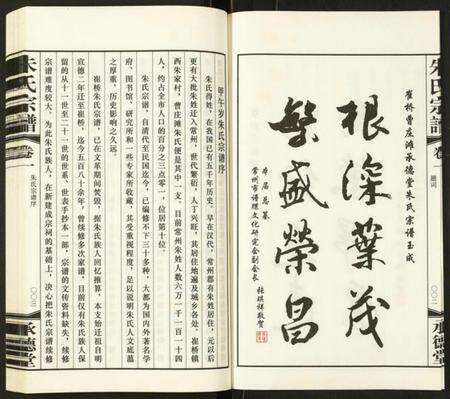 朱氏宗譜
題词
〇〇二
承德堂
崔桥曹庄滩承德堂朱氏宗谱玉成
根深葉茂
繁盛榮昌
本届总纂
常州市谱牒文化研究会副会长 張琪祥敬賀
甲午岁朱氏宗谱序
朱氏得姓，在我国已有五千年历史，早在汉代，常州郡有朱姓居住，元以后
更有大批朱姓迁入常州，世代繁衍，人丁兴旺，其居住地遍及城乡各处，崔桥镇
西朱家村、曹庄滩朱氏便是其中一支，目前常州朱姓人数六万一千一百一十四
人，约占全市人口的百分之三点零一，位居第十位。
朱氏宗谱，自清代至民国迄今，已编修不下三十多种，大都为国内外著名学
府、图书馆、研究所和一些专家所收藏，其受重视程度，足以说明朱氏人文底蕴
之厚重，历史影响之久远。
崔桥朱氏宗谱，已在文革期间焚毁，据朱氏族人回忆推算，本支始迁祖自明
宣德二年迁至崔桥，迄今五百八十余年，曾续修多次家谱，目前仅有朱氏族人保
留的从十一世至二十一世的世系、世表手抄本一部，宗谱的文传资料缺失，续修
宗谱难度较大。为此朱氏族人，在新建成宗祠的基础上，决心把朱氏宗谱续修
朱氏宗譜
卷一
朱氏宗谱序
〇〇三
承德堂